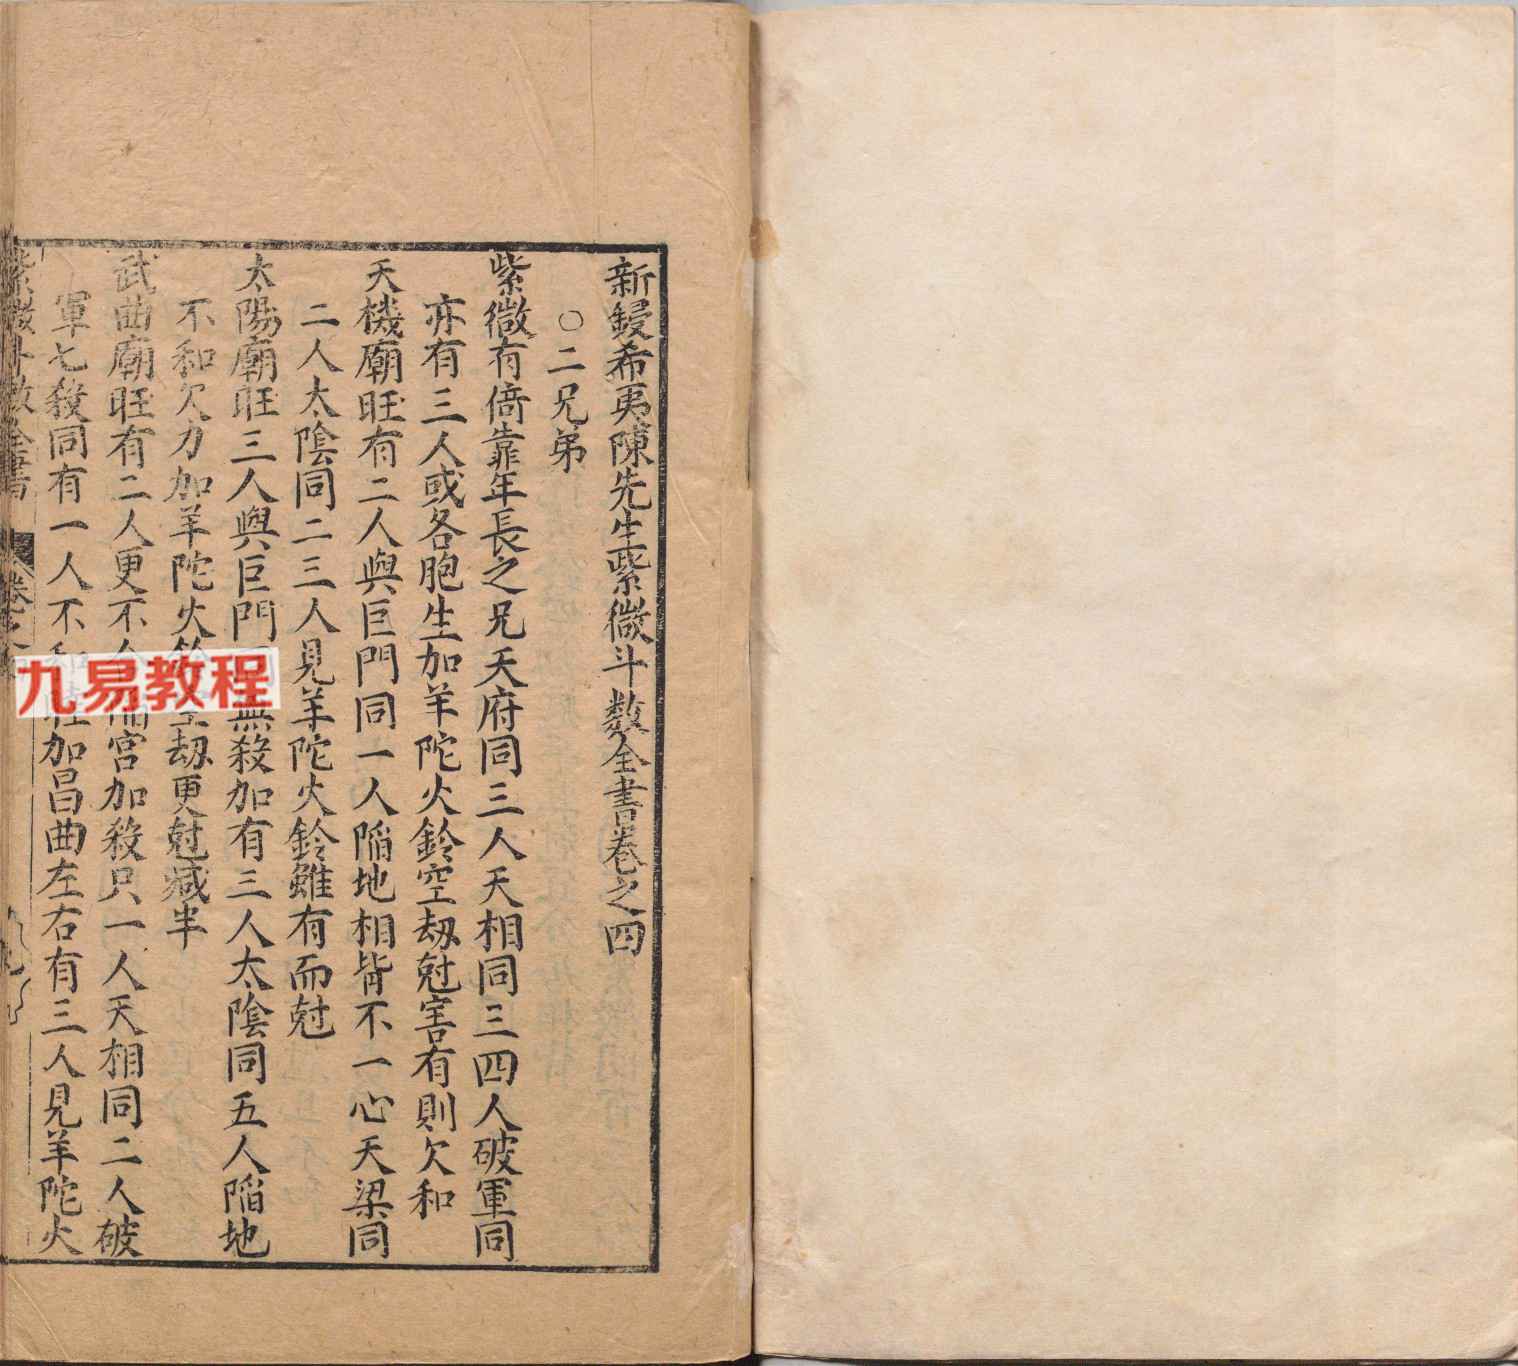 新鋟希夷陳先生紫微斗數全書卷之四
○二兄弟
紫微有倚靠年長之兄天府同三人天相同三四人破軍同
亦有三人或各胞生加羊陀火鈴空刼尅害有則欠和
天機廟旺有二人與巨門同一人陷地相背不一心天梁同
二人太陰同二三人見羊陀火鈴雖有而尅
太陽廟旺三人與巨門無殺加有三人太陰同五人陷地
不和欠力加羊陀火刼更尅减半
武曲廟旺有二人更不宮加殺只一人天相同二人破
軍七殺同有一人不加昌曲左右有三人見羊陀火
紫微斗數全書 卷之
九易教程